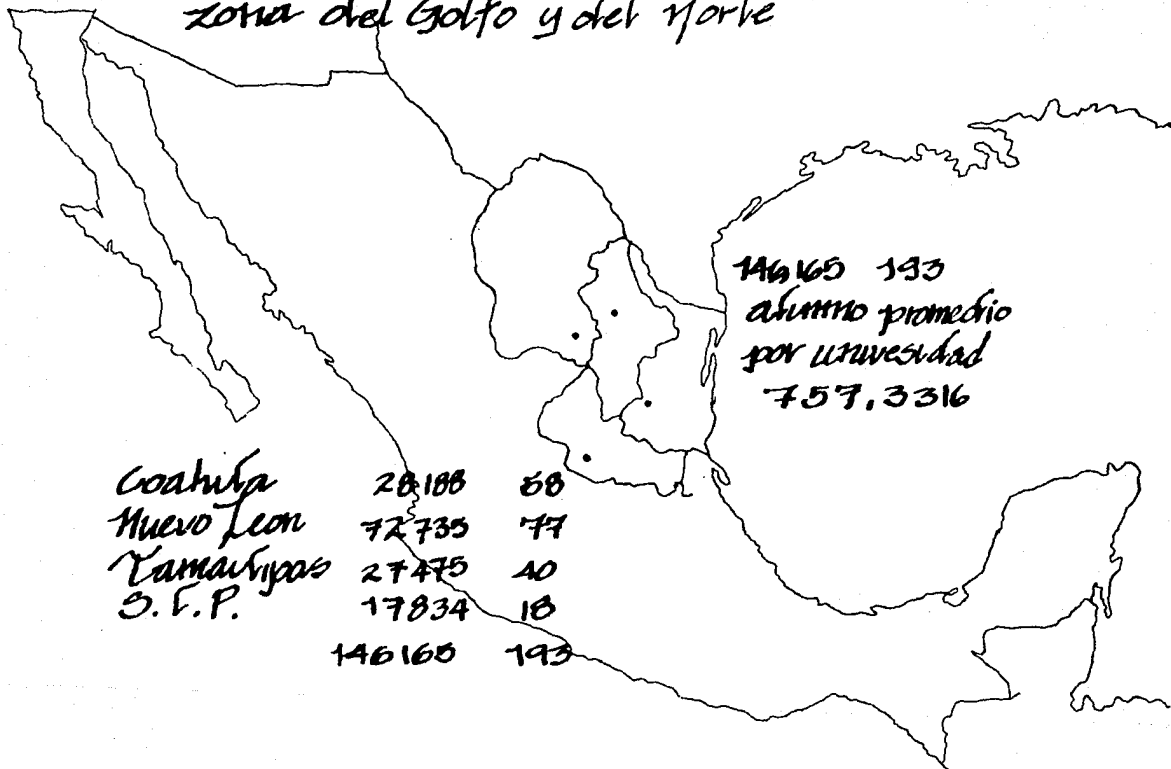 zona del Golfo y del Norte
146165 193
alumno promedio
por univesidad
757.3316
Coahuila 28188 58
Nuevo Leon 72735 77
Tamaulipas 27475 40
S.L.P. 17834 18
146165 193